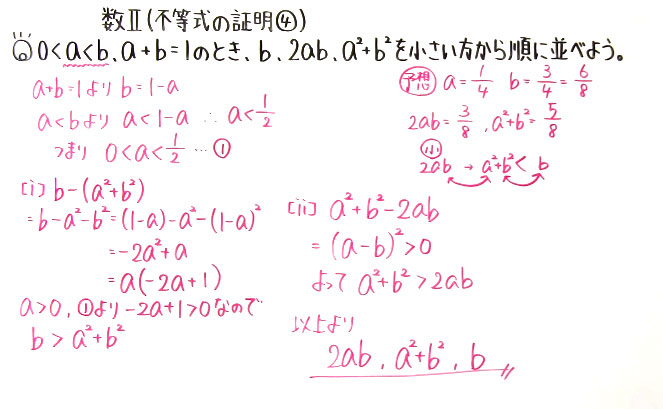 数Ⅱ(不等式の証明④)
0<a<b、a+b=1のとき、b、2ab、a²+b²を小さい方から順に並べよう。
a+b=1より b=1-a
a<bより a<1-a ∴ a<1/2
つまり 0<a<1/2 …①
[i] b-(a²+b²)
=b-a²-b²=(1-a)-a²-(1-a)²
=-2a²+a
=a(-2a+1)
a>0, ①より -2a+1>0なので
b>a²+b²
予想 a=1/4 b=3/4=6/8
2ab=3/8, a²+b²=5/8
小
2ab → a²+b²< b
[ii] a²+b²-2ab
=(a-b)²>0
よって a²+b²>2ab
以上より
2ab, a²+b², b